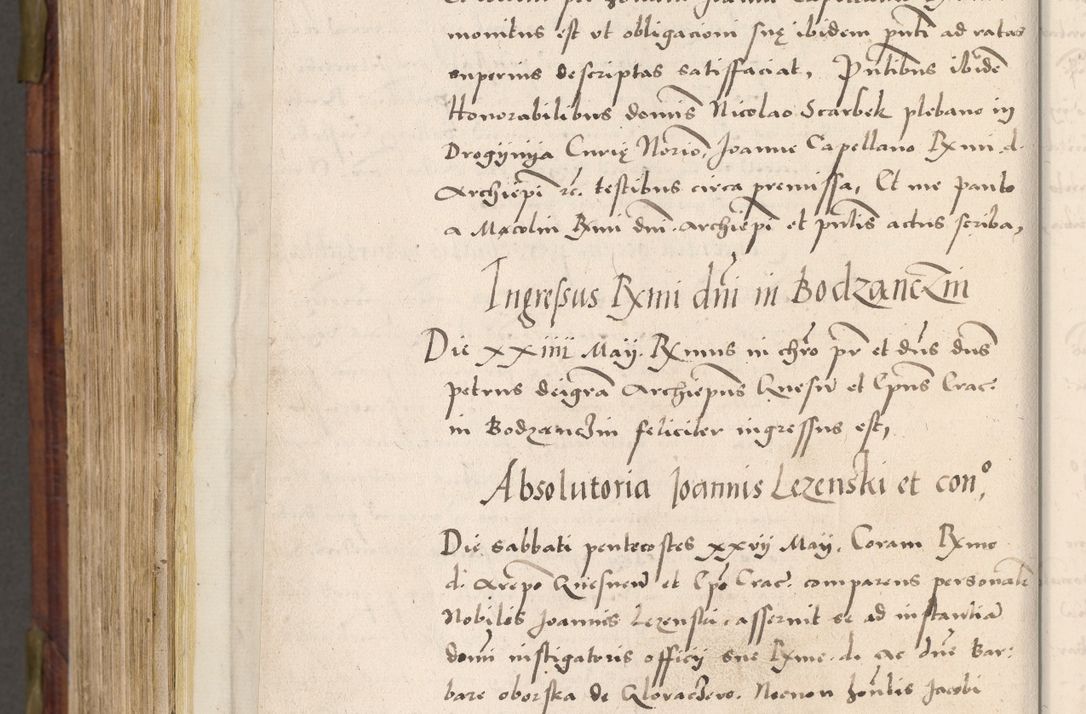 monitus est ut obligacioni suę ibidem pnti ad ratas
superius descriptas satisfaciat, Pntibus ibidē
Honorabilibus dominis Nicolao Scarbek plebano in
Drogynya Curię Notrio, Joanne Capellano Rxmi d.
Archiepi re. testibus circa premissa, Et me paulo
a Macolin Rxmi dni Archiepi et pntis actus scriba,
Ingressus Rxmi dni in Bodzanczin
Die xxiiii May. Rxmus in chro pr et dns dns
petrus dei gra Archiepus Gnesn et Epus Crac
in Bodzanczin feliciter ingressus est,
Absolutoria Joannis Lezenski et con,
Die sabbati pentecostes xxvij May. Coram Rxmo
d. Arepo Gnesnen et Epo Crac. comparens personale
Nobilis Joannis Lezenski asseruit se ad instantia
domi instigatoris officij sue Rxme d. ac dne Bar:
bare oborska de Necnon honlis Jacobi